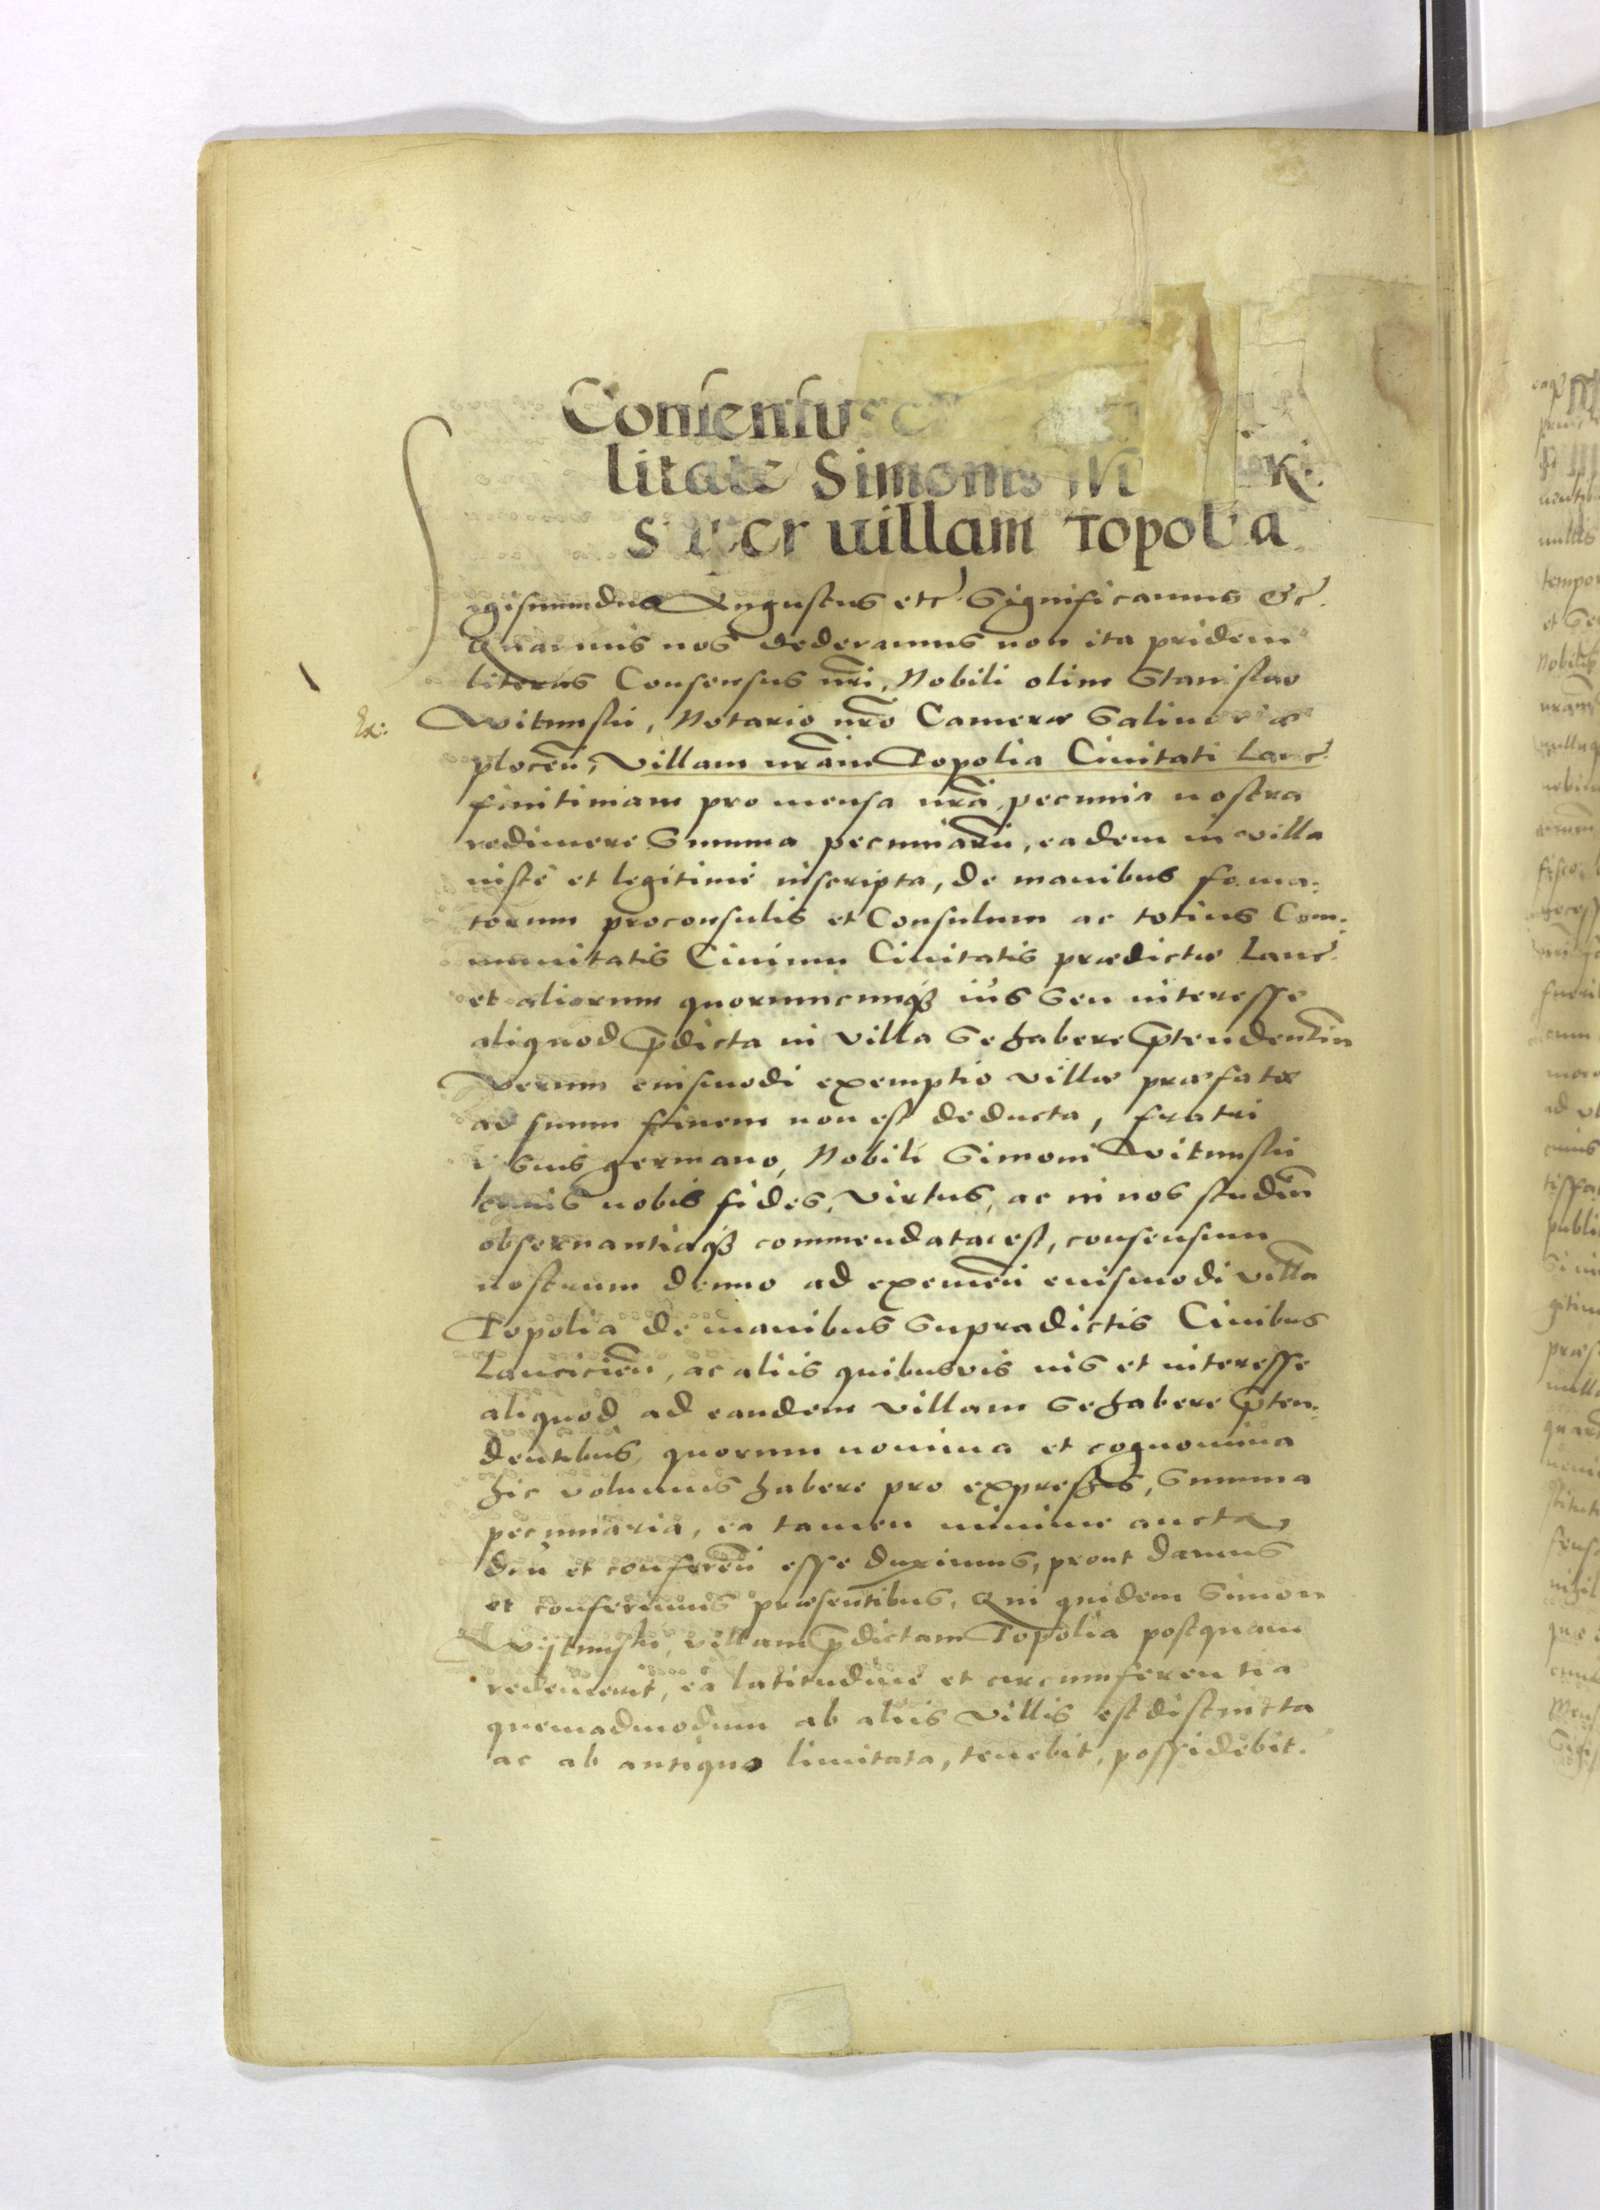 Consensus
litate Simonis W ski.
super uillam Topolia
Sigismundus Augustus etc̃ Significamus &c̃.
Quamuis nos dederamus non ita pridem
literas Consensus nr̃i, Nobili olim Stanislao
Witunskj, Notario nr̃o Cameræ Salinariæ
Ex:
plocen̄, Villam nr̃am Topolia Ciuitati Lanc̃.
finitimam pro mensa nr̃a, pecunia nostra
redimere Summa pecuniar̃ia, eadem in villa
iuste et legitime inscripta, de manibus fama-
torum proconsulis et Consulum ac totius Com-
munitatis Ciuium Ciuitatis prædictæ Lanc̃.
et aliorum quorumcunqȝ ius seu interesse
aliquod p̃dicta in villa se habere p̃tendentiu̅
Verum eiusmodi exemptio villæ præfatæ
ad suum finem non est deducta, fratri
eius germano, Nobili Simoni Witunskj
cuius nobis fides, virtus, ac in nos studiu̅
obseruantiaqȝ commendata est, consensum
nostrum denuo ad eximen̄ eiusmodi villa̅
Topolia de manibus supradictis Ciuibus
Lancicien̄, ac aliis quibusvis ius et interesse
aliquod ad eandem villam se habere p̃ten-
dentibus, quorum nomina et cognomina
hic volumus habere pro expressis, Summa
pecuniaria, ea tamen minime aucta,
dan̄ et conferen̄ esse duximus, prout damus
et conferimus præsentibus, Qui quidem Simon
Wijtunskj, villam p̃dictam Topolia postquam
redemerit, ea latitudine et circumferentia
quemadmodum ab aliis villis est distincta
ac ab antiquo limitata, tenebit, possidebit.